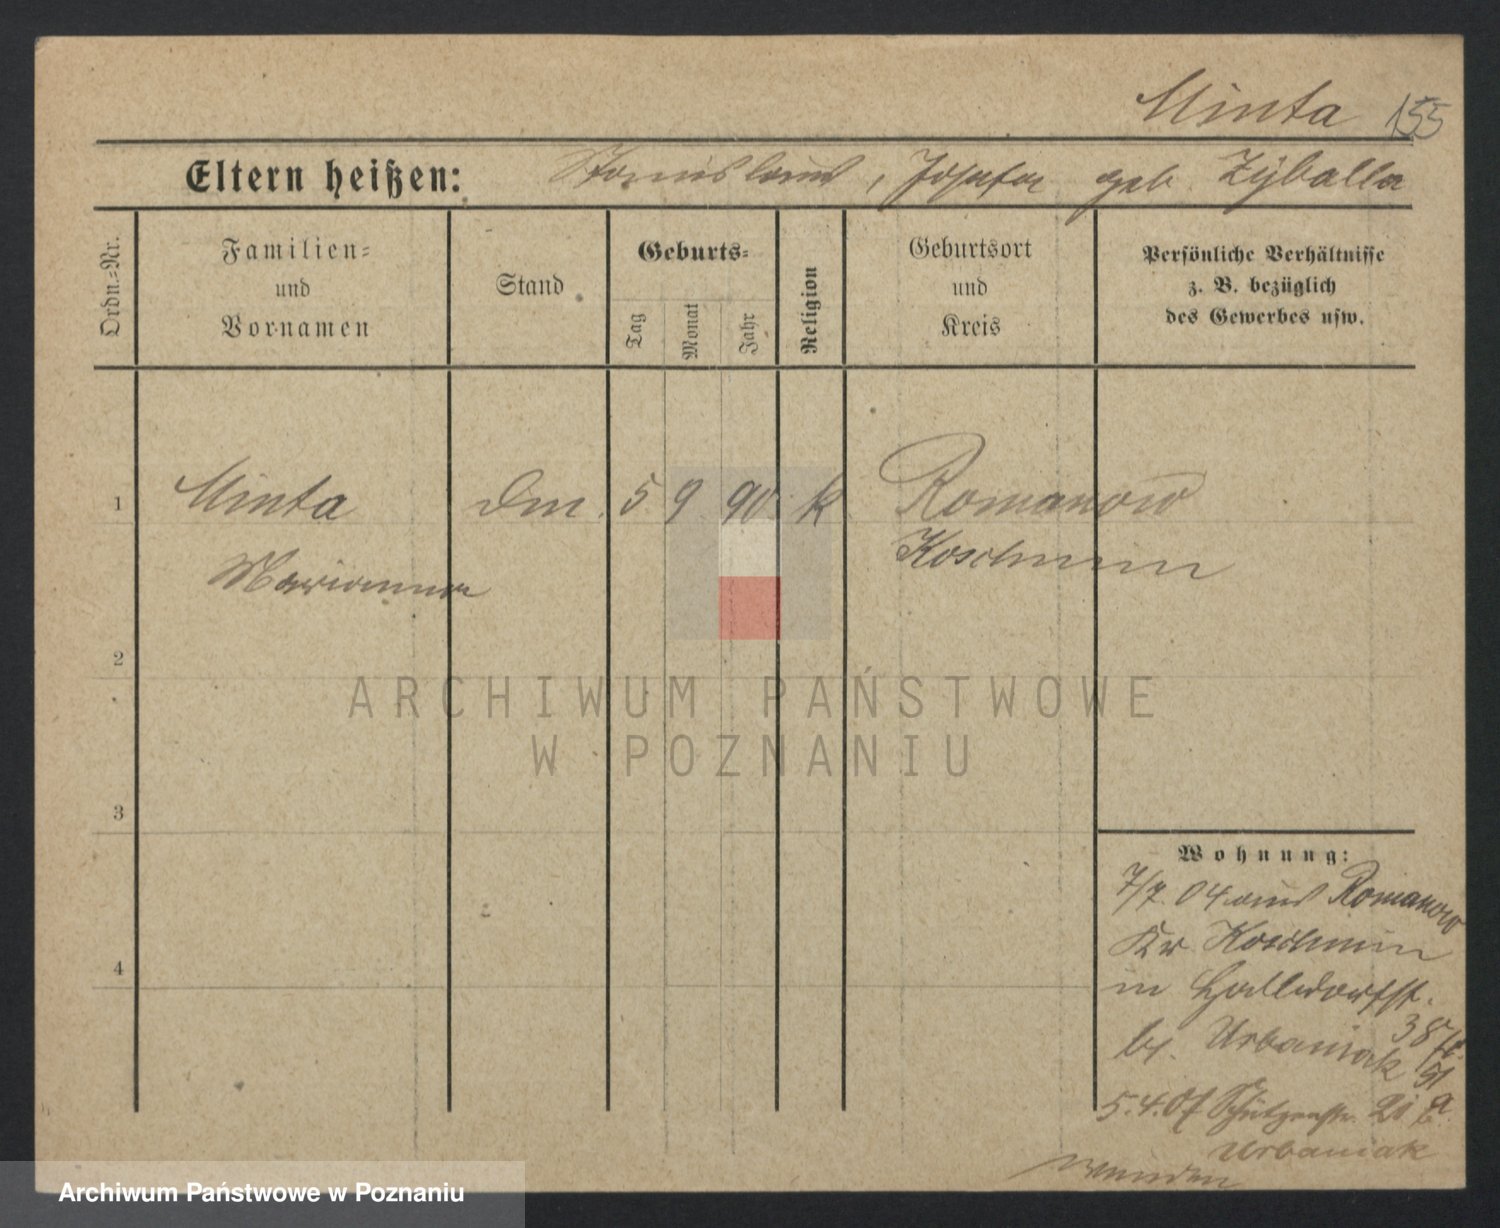 Minta 155
Eltern heißen: Stanislaus, Josefa geb Zyballa
Ordn.=Nr.
Familien=
und
Vornamen
Stand
Geburts=
Tag
Monat
Jahr
Religion
Geburtsort
und
Kreis
Persönliche Verhältnisse
z. B. bezüglich
des Gewerbes usw.
1 Minta Dm. 5 9 90 k Romanow
Marianna Koschmin
2
ARCHIWUM PAŃSTWOWE
W POZNANIU
3
4
Wohnung:
7/7. 04 aus Romanow
Kr Koschmin
in Halldorfst.
38
bei. Urbaniak
5.4.07 Schützenstr.
Urbaniak
Archiwum Państwowe w Poznaniu